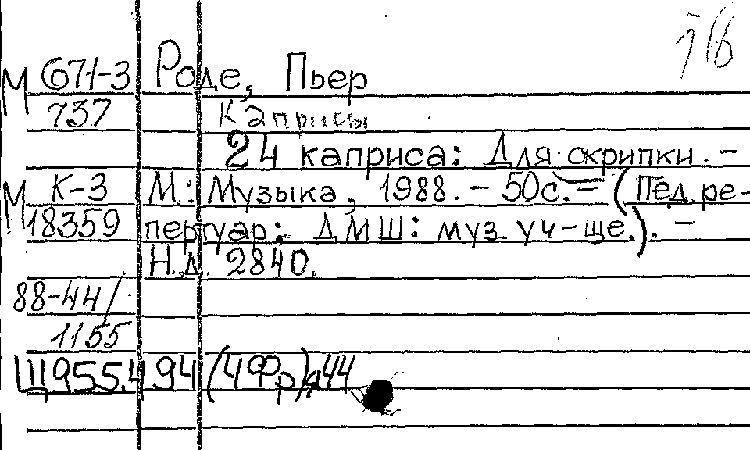 М 671-3 Роде, Пьер
737 Каприсы
24 каприса: Для скрипки. –
М К-3 М.: Музыка, 1988. – 50с. – (Пед. ре-
18359 пертуар: ДМШ: муз. уч-ще.). –
Н.Д. 2840.
88-44/
1155
Щ955.4 94 (4Фр)я44